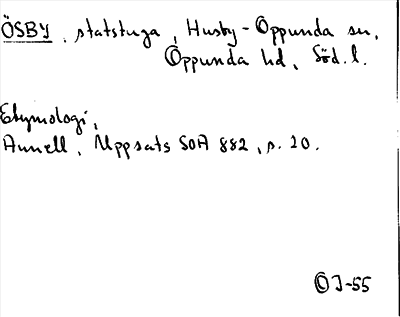 ÖSBY, statstuga, Husby-Oppunda sn,
Oppunda hd, Söd.l.
Etymologi,
Annell, Uppsats SOA 882, s. 20.
OJ-55